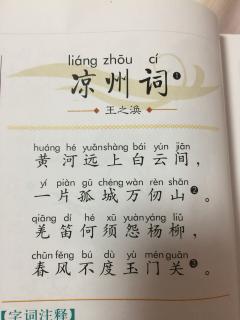 liáng zhōu cí
凉州词❶
王之涣
huáng hé yuǎn shàng bái yún jiān
黄河远上白云间，
yí piàn gū chéng wàn rèn shān
一片孤城万仞山❷。
qiāng dí hé xū yuàn yáng liǔ
羌笛何须怨杨柳，
chūn fēng bú dù yù mén guān
春风不度玉门关❸。
【字词注释】